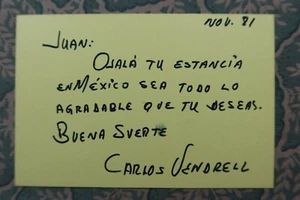 NOV. 81
JUAN:
OJALÁ TU ESTANCIA
EN MÉXICO SEA TODO LO
AGRADABLE QUE TU DESEAS.
BUENA SUERTE
CARLOS VENDRELL